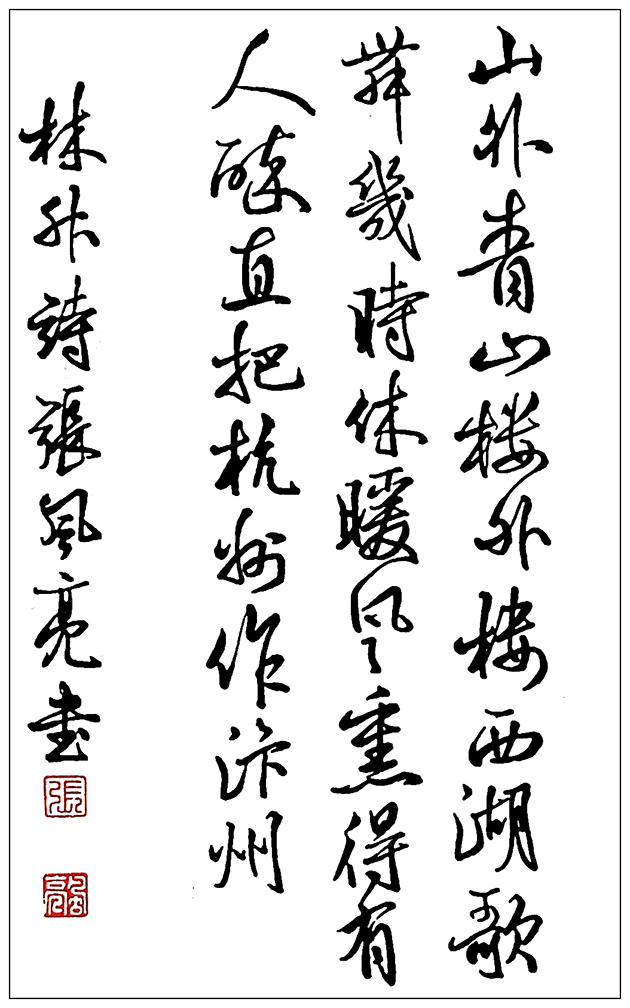 山外青山楼外楼西湖歌
舞幾時休暖风熏得有
人醉直把杭州作汴州
林升詩張風亮書
張